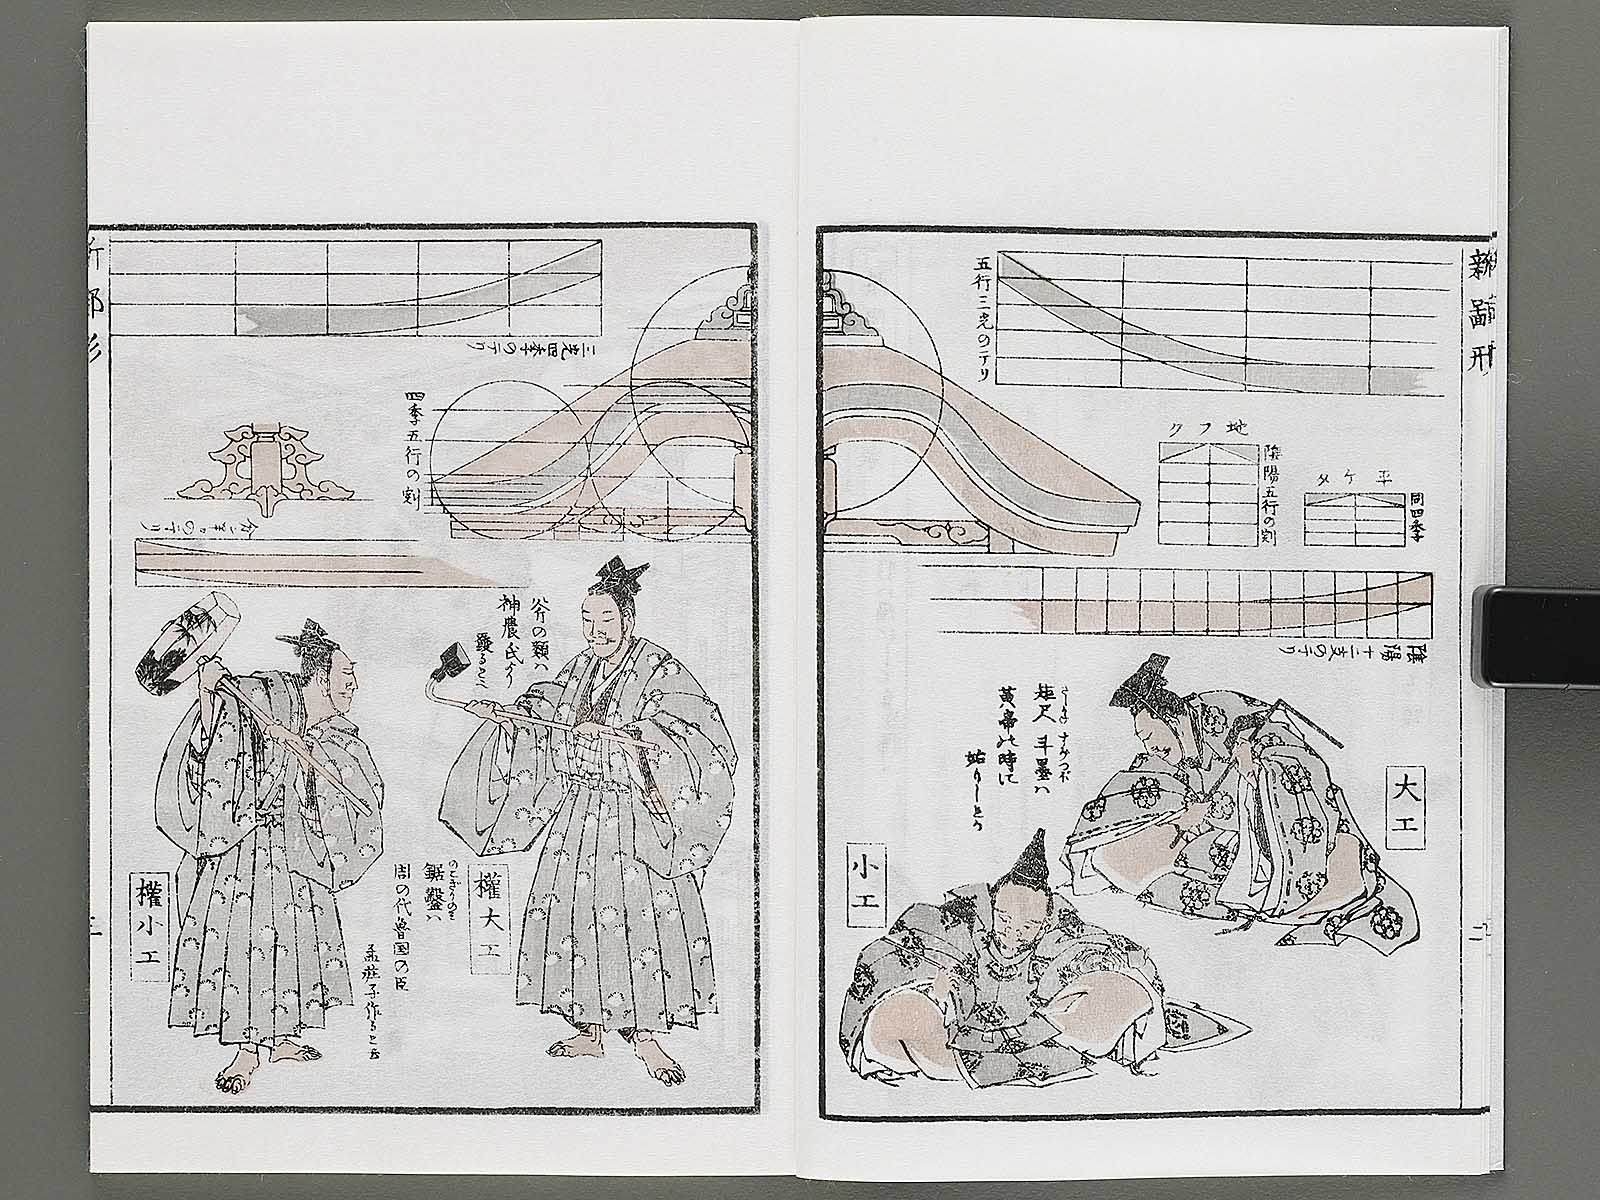 新鄙形
五行三尅のテリ
地フク
陰陽五行の割
平ケタ
同四季
陰陽十二支のテリ
大工
さしかね すみつぼ
矩尺 斗墨ハ
黄帝の時に
始りしとう
小工
二
三尅四季のテリ
四季五行の割
斧の類ハ
神農氏より
權大工
のこぎりのミ
鋸鑿ハ
周の代魯国の臣
孟莊子作ると云
權小工
三